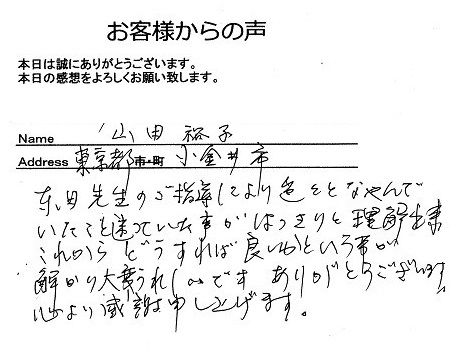 お客様からの声
本日は誠にありがとうございます。
本日の感想をよろしくお願い致します。
Name 山田 裕子
Address 東京都 市・町 小金井市
東田先生のご指導により色々となやんで
いたこと迷っていた事がはっきりと理解出来
これからどうすれば良いかという事が
解かり大変うれしいです ありがとうございます
心より感謝申し上げます。